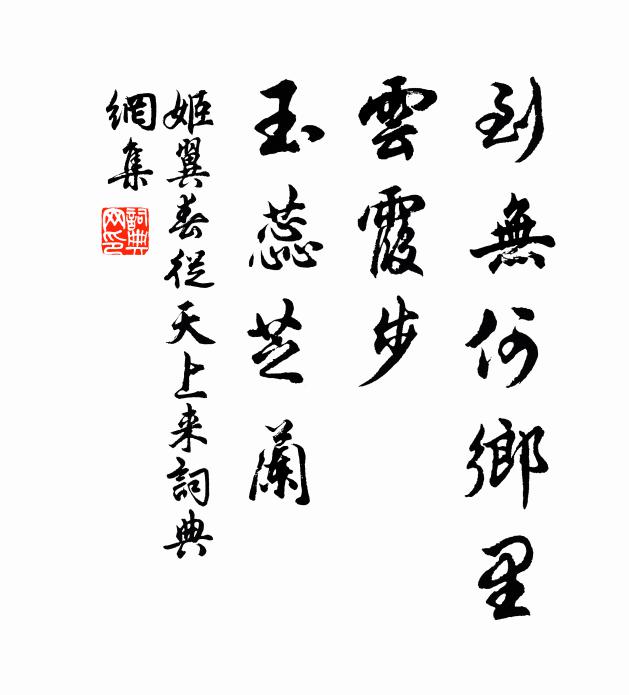 到無何鄉里
雲霞步
玉蕊芝蘭
姬翼春從天上来詞典
網集
詞典网印